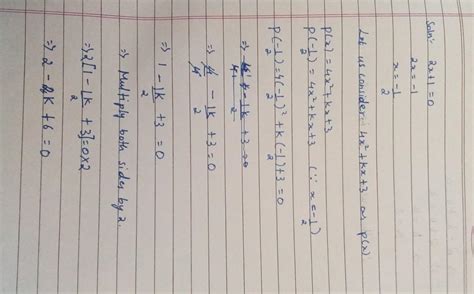 Soln:- 2x+1=0
2x = -1
x = -1/2
Let us consider 4x²+kx+3 as p(x)
p(x) = 4x²+kx+3
p(-1/2) = 4x²+kx+3 (∵ x = -1/2)
p(-1/2) = 4(-1/2)²+k(-1/2)+3 = 0
-1k/2 + 3 = 0
⇒ 4/4 - 1k/2 + 3 = 0
⇒ 1 - 1k/2 + 3 = 0
⇒ Multiply both sides by 2.
⇒ 2[1 - 1k/2 + 3] = 0×2
⇒ 2 - k + 6 = 0